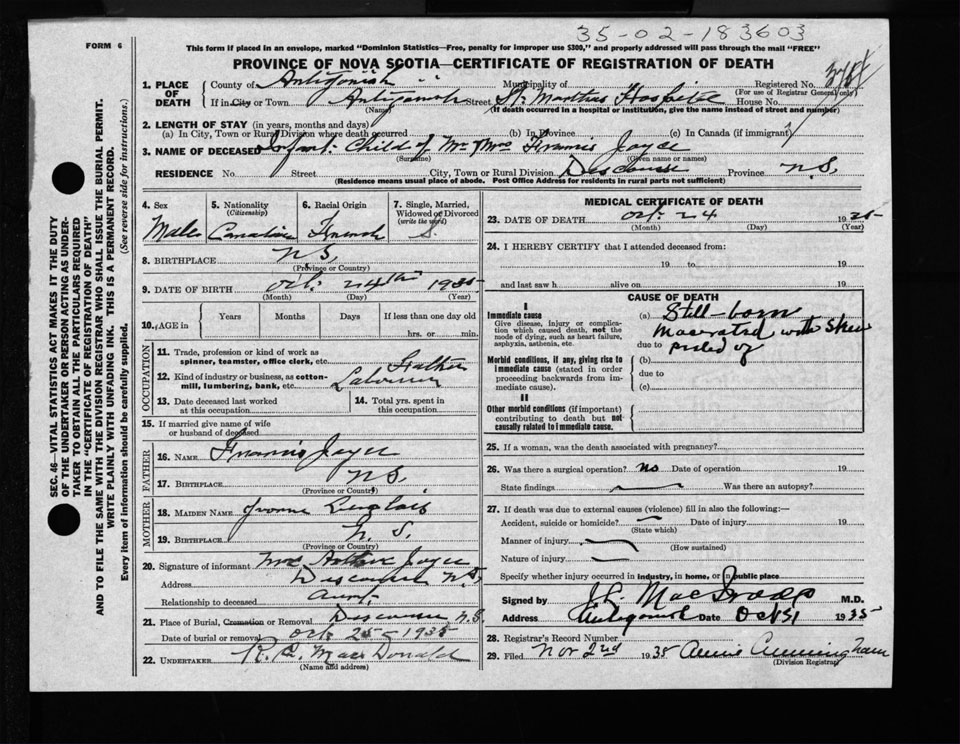 35-02-183603
FORM 6
This form if placed in an envelope, marked "Dominion Statistics—Free, penalty for improper use $300," and properly addressed will pass through the mail "FREE"
PROVINCE OF NOVA SCOTIA—CERTIFICATE OF REGISTRATION OF DEATH
SEC. 46—VITAL STATISTICS ACT MAKES IT THE DUTY
OF THE UNDERTAKER OR PERSON ACTING AS UNDER-
TAKER TO OBTAIN ALL THE PARTICULARS REQUIRED
IN THE "CERTIFICATE OF REGISTRATION OF DEATH"
AND TO FILE THE SAME WITH THE DIVISION REGISTRAR WHO SHALL ISSUE THE BURIAL PERMIT.
WRITE PLAINLY WITH UNFADING INK. THIS IS A PERMANENT RECORD.
Every item of information should be carefully supplied. (See reverse side for instructions.)
1. PLACE OF DEATH County of Antigonish Municipality of Registered No.
(For use of Registrar General only)
If in City or Town Antigonish Street St. Marthas Hospital House No.
(Name) (If death occurred in a hospital or institution, give the name instead of street and number)
2. LENGTH OF STAY (in years, months and days)
(a) In City, Town or Rural Division where death occurred (b) In Province (c) In Canada (if immigrant)
3. NAME OF DECEASED Infant Child of Mr Mrs Francis Joyce
(Surname) (Given name or names)
RESIDENCE No. Street City, Town or Rural Division Descousse Province N.S.
(Residence means usual place of abode. Post Office Address for residents in rural parts not sufficient)
4. Sex Male
5. Nationality (Citizenship) Canadian
6. Racial Origin French
7. Single, Married, Widowed or Divorced (write the word) S.
8. BIRTHPLACE N.S.
(Province or Country)
9. DATE OF BIRTH Oct. 24th 1935
(Month) (Day) (Year)
10. AGE in Years Months Days If less than one day old
hrs. or min.
OCCUPATION
11. Trade, profession or kind of work as spinner, teamster, office clerk, etc. Father
12. Kind of industry or business, as cotton-mill, lumbering, bank, etc. Labourer
13. Date deceased last worked at this occupation
14. Total yrs. spent in this occupation
15. If married give name of wife or husband of deceased
FATHER
16. NAME Francis Joyce
17. BIRTHPLACE N.S.
(Province or Country)
MOTHER
18. MAIDEN NAME Yvonne Langlois
19. BIRTHPLACE N.S.
(Province or Country)
20. Signature of informant Mrs Arthur Joyce
Address Descousse N.S.
Relationship to deceased Aunt.
21. Place of Burial, Cremation or Removal Descousse N.S.
Date of burial or removal Oct 25-1935
22. UNDERTAKER R. MacDonald
(Name and address)
MEDICAL CERTIFICATE OF DEATH
23. DATE OF DEATH Oct. 24 1935
(Month) (Day) (Year)
24. I HEREBY CERTIFY that I attended deceased from:
19 to 19
and last saw h alive on 19
CAUSE OF DEATH
I
Immediate cause
Give disease, injury or complication which caused death, not the mode of dying, such as heart failure, asphyxia, asthenia, etc.
(a) Still-born
Macerated with Skin
due to peeled off
Morbid conditions, if any, giving rise to immediate cause (stated in order proceeding backwards from immediate cause).
(b)
due to
(c)
II
Other morbid conditions (if important) contributing to death but not causally related to immediate cause.
25. If a woman, was the death associated with pregnancy?
26. Was there a surgical operation? No Date of operation 19
State findings Was there an autopsy?
27. If death was due to external causes (violence) fill in also the following:—
Accident, suicide or homicide? Date of injury 19
(State which)
Manner of injury
(How sustained)
Nature of injury
Specify whether injury occurred in industry, in home, or in public place
Signed by M.D.
Address Antigonish Date Oct 31 1935
28. Registrar's Record Number
29. Filed Nov 2nd 1935 Annie Cunningham
(Division Registrar)